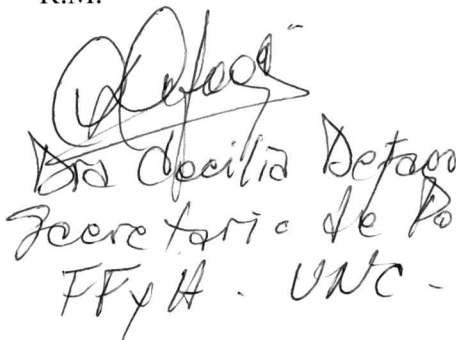 R.M.
Dra Cecilia Defago
Secretaria de Po
FFyH. UNC-